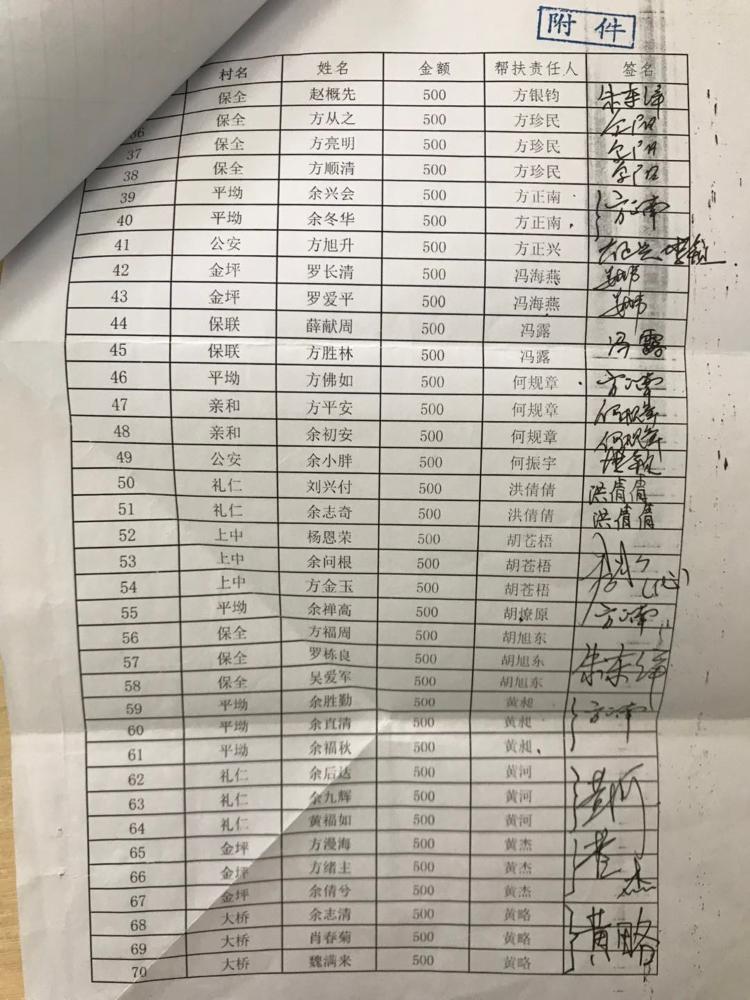 附件
村名 姓名 金额 帮扶责任人 签名
保全 赵概先 500 方银钧
36 保全 方从之 500 方珍民
37 保全 方亮明 500 方珍民
38 保全 方顺清 500 方珍民
39 平坳 余兴会 500 方正南
40 平坳 余冬华 500 方正南
41 公安 方旭升 500 方正兴
42 金坪 罗长清 500 冯海燕
43 金坪 罗爱平 500 冯海燕
44 保联 薛献周 500 冯露
45 保联 方胜林 500 冯露 冯露
46 平坳 方佛如 500 何规章
47 亲和 方平安 500 何规章 何规章
48 亲和 余初安 500 何规章 何规章
49 公安 余小胖 500 何振宇
50 礼仁 刘兴付 500 洪倩倩 洪倩倩
51 礼仁 余志奇 500 洪倩倩 洪倩倩
52 上中 杨恩荣 500 胡苍梧
53 上中 余问根 500 胡苍梧
54 上中 方金玉 500 胡苍梧
55 平坳 余禅高 500 胡燎原
56 保全 方福周 500 胡旭东
57 保全 罗栋良 500 胡旭东
58 保全 吴爱军 500 胡旭东
59 平坳 余胜勤 500 黄昶
60 平坳 余直清 500 黄昶
61 平坳 余福秋 500 黄昶
62 礼仁 余后达 500 黄河
63 礼仁 余九辉 500 黄河 黄河
64 礼仁 黄福如 500 黄河
65 金坪 方漫海 500 黄杰
66 金坪 方绪主 500 黄杰 黄杰
67 金坪 余倩兮 500 黄杰
68 大桥 余志清 500 黄略
69 大桥 肖春菊 500 黄略 黄略
70 大桥 魏满来 500 黄略